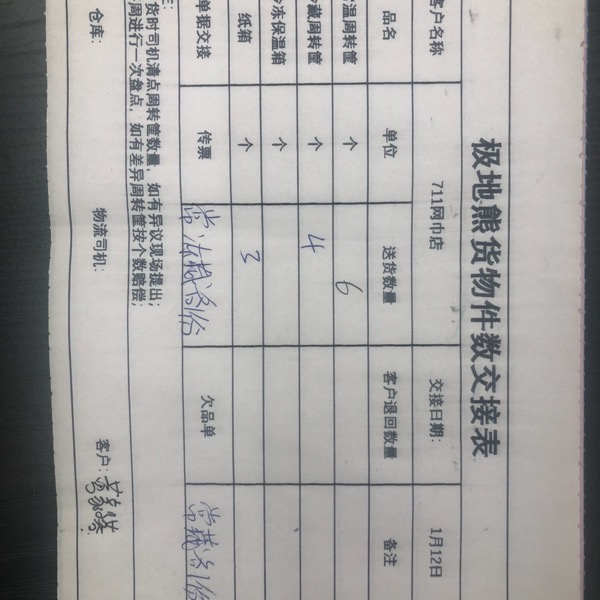 极地熊货物件数交接表
客户名称 711网巾店 交接日期： 1月12日
品名 单位 送货数量 客户退回数量 备注
温周转筐 个 6
藏周转筐 个 4
冻保温箱 个
纸箱 个 3
单据交接 传票 常冻藏各1份 欠品单 常藏各1份
货时司机清点周转筐数量，如有异议现场提出；
周进行一次盘点，如有差异周转筐按个数赔偿；
仓库： 物流司机： 客户：